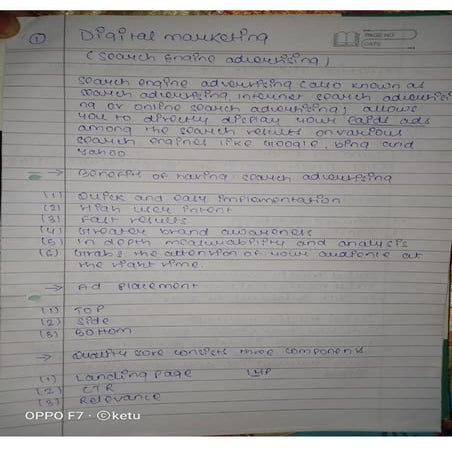 PAGE NO.
DATE
1
Digital marketing
(Search Engine advertising)
Search engine advertising (also known as
search advertising, internet search advertisi
ng or online search advertising) allows
you to directly display your paid ads
among the search results on various
search engines like Google, bing and
Yahoo.
→ Benefits of having search advertising
(1) Quick and easy implementation
(2) High user intent
(3) Fast results
(4) Greater brand awareness
(5) In depth measurability and analysis
(6) Grabs the attention of your audience at
the right time.
→ Ad placement
(1) TOP
(2) Side
(3) Bottom
→ Quality score consists three components
(1) Landing page
(2) CTR
(3) Relevance
OPPO F7 · ©ketu